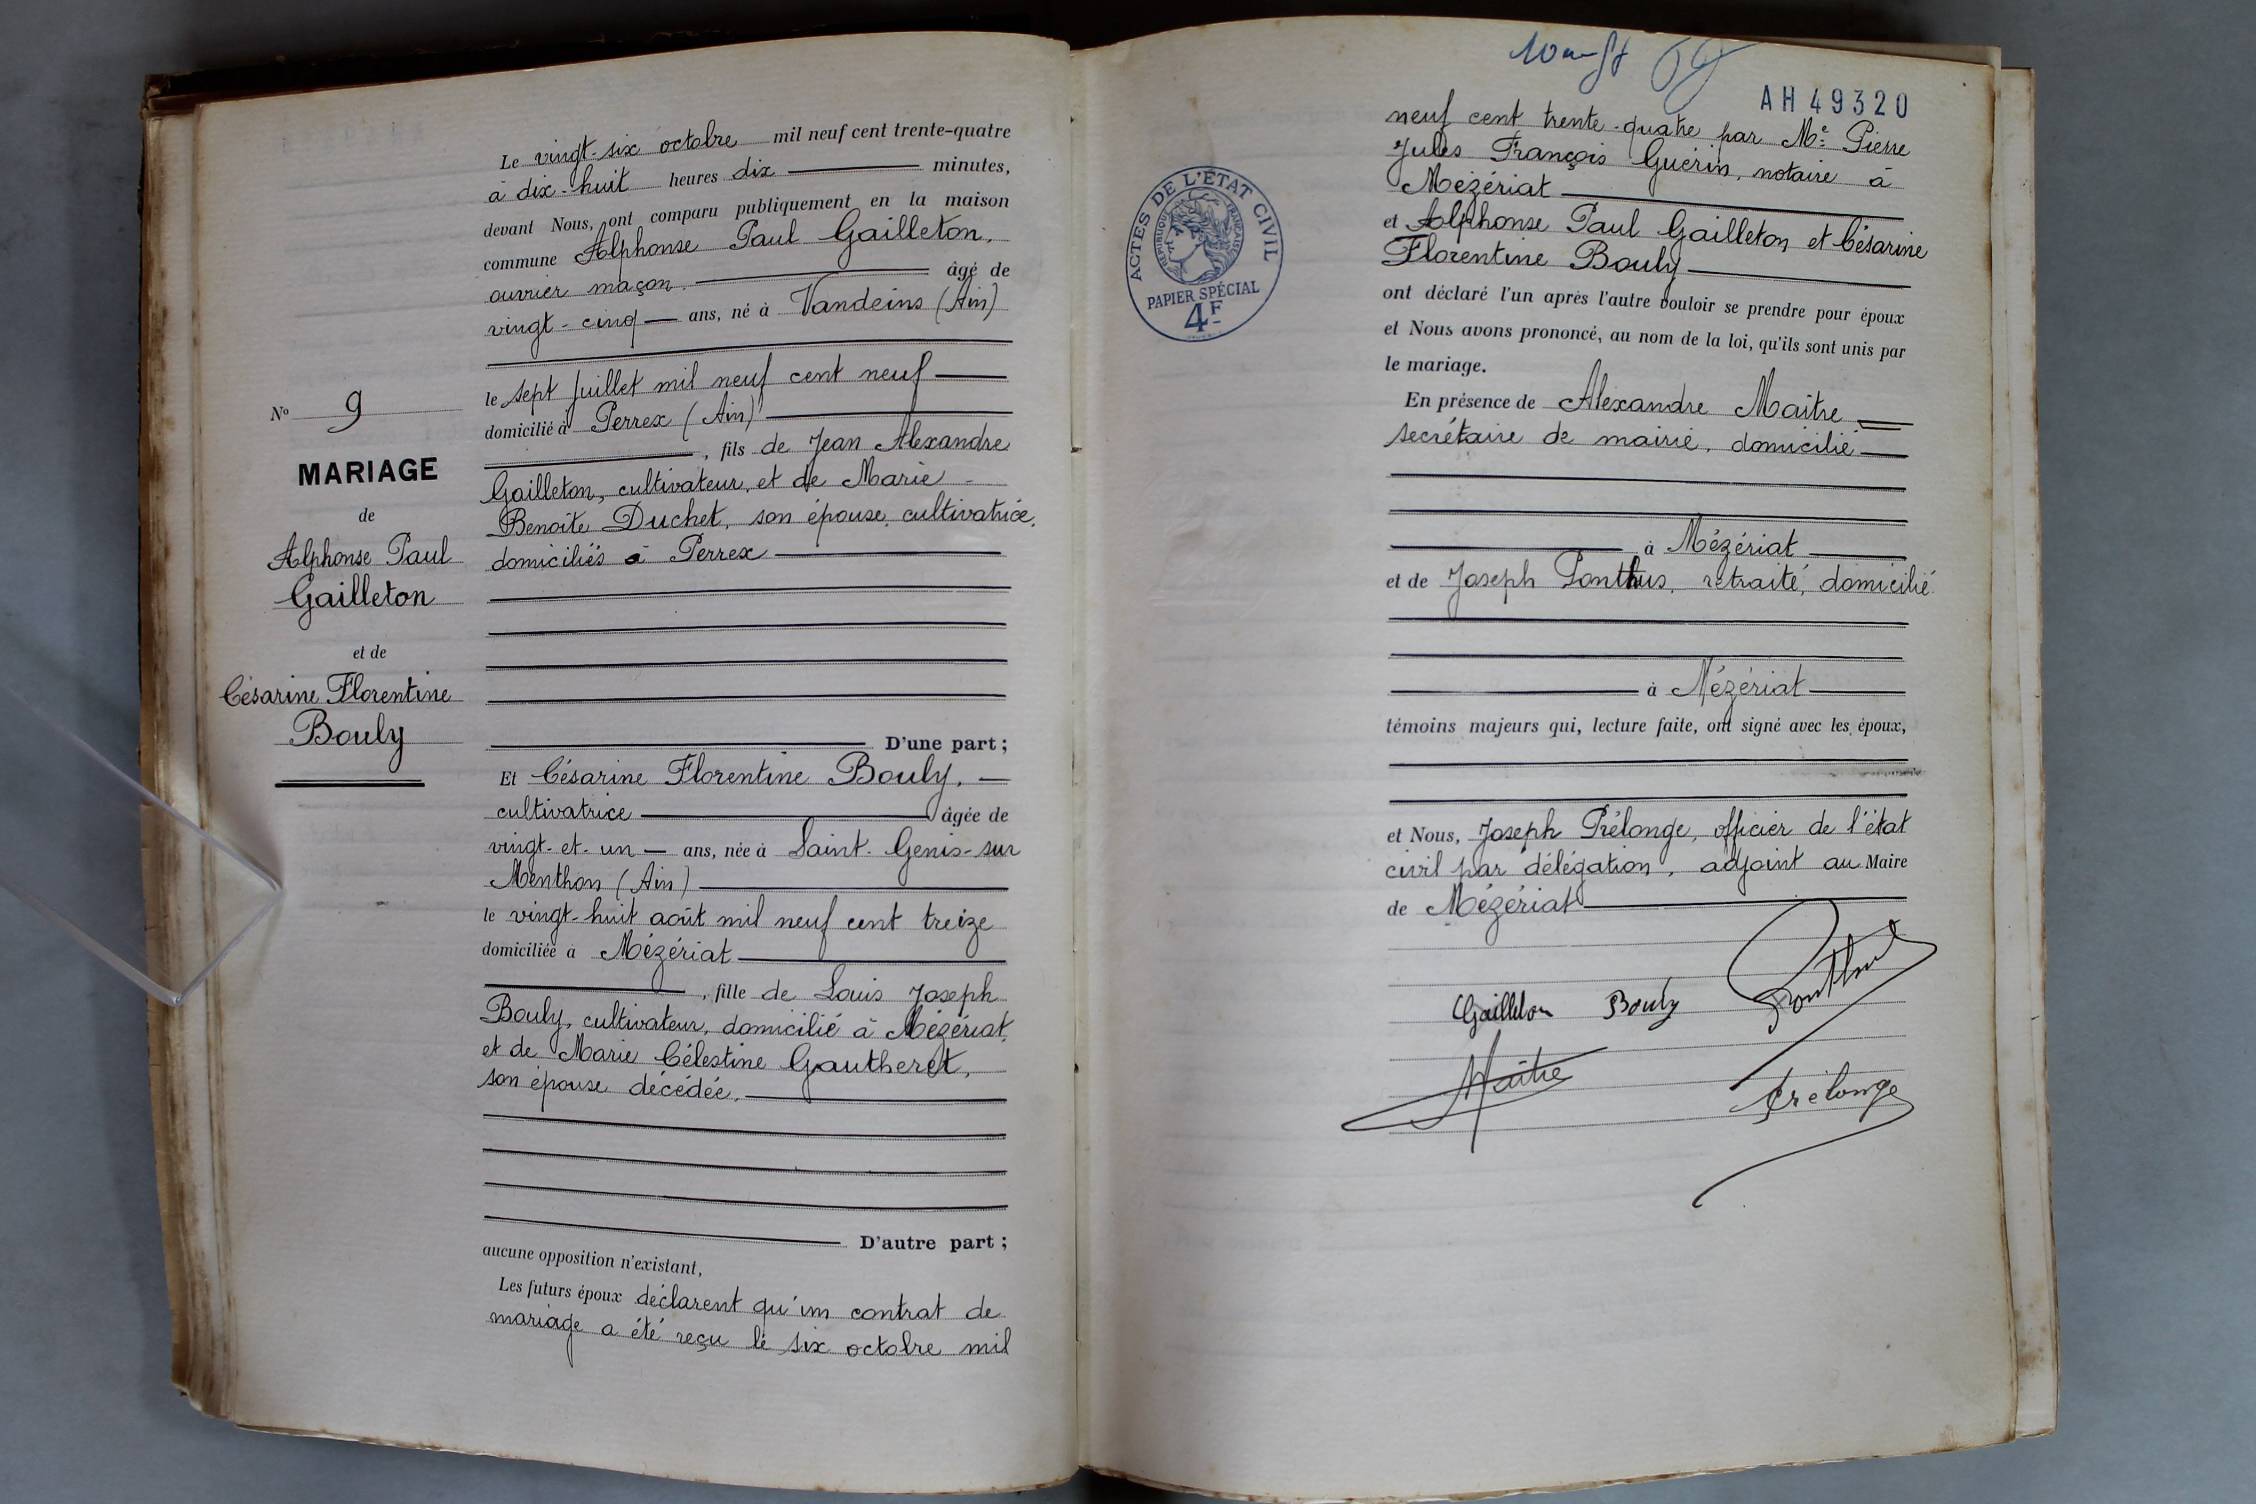 N° 9
MARIAGE
de
Alphonse Paul
Gailleton
et de
Césarine Florentine
Bouly
Le vingt-six octobre mil neuf cent trente-quatre
à dix-huit heures dix minutes,
devant Nous, ont comparu publiquement en la maison
commune Alphonse Paul Gailleton,
ouvrier maçon. âgé de
vingt-cinq ans, né à Vandeins (Ain)
le sept Juillet mil neuf cent neuf
domicilié à Perrex (Ain)
, fils de Jean Alexandre
Gailleton, cultivateur, et de Marie
Benoîte Duchet, son épouse, cultivatrice,
domiciliés à Perrex
D'une part ;
Et Césarine Florentine Bouly,
cultivatrice âgée de
vingt-et-un ans, née à Saint-Genis-sur
Menthon (Ain)
le vingt-huit août mil neuf cent treize
domiciliée à Mézériat
, fille de Louis Joseph
Bouly, cultivateur, domicilié à Mézériat,
et de Marie Célestine Gautheret,
son épouse décédée.
D'autre part ;
aucune opposition n'existant,
Les futurs époux déclarent qu'un contrat de
mariage a été reçu le six octobre mil
AH 49320
ACTES DE L'ÉTAT CIVIL
RÉPUBLIQUE FRANÇAISE
PAPIER SPÉCIAL
4F
neuf cent trente-quatre par Me Pierre
Jules François Guérin, notaire à
Mézériat
et Alphonse Paul Gailleton et Césarine
Florentine Bouly
ont déclaré l'un après l'autre vouloir se prendre pour époux
et Nous avons prononcé, au nom de la loi, qu'ils sont unis par
le mariage.
En présence de Alexandre Maître
secrétaire de mairie, domicilié
à Mézériat
et de Joseph Ponthus, retraité, domicilié
à Mézériat
témoins majeurs qui, lecture faite, ont signé avec les époux,
et Nous, Joseph Prélonge, officier de l'état
civil par délégation, adjoint au Maire
de Mézériat
Gailleton Bouly Ponthus
Maître Prélonge